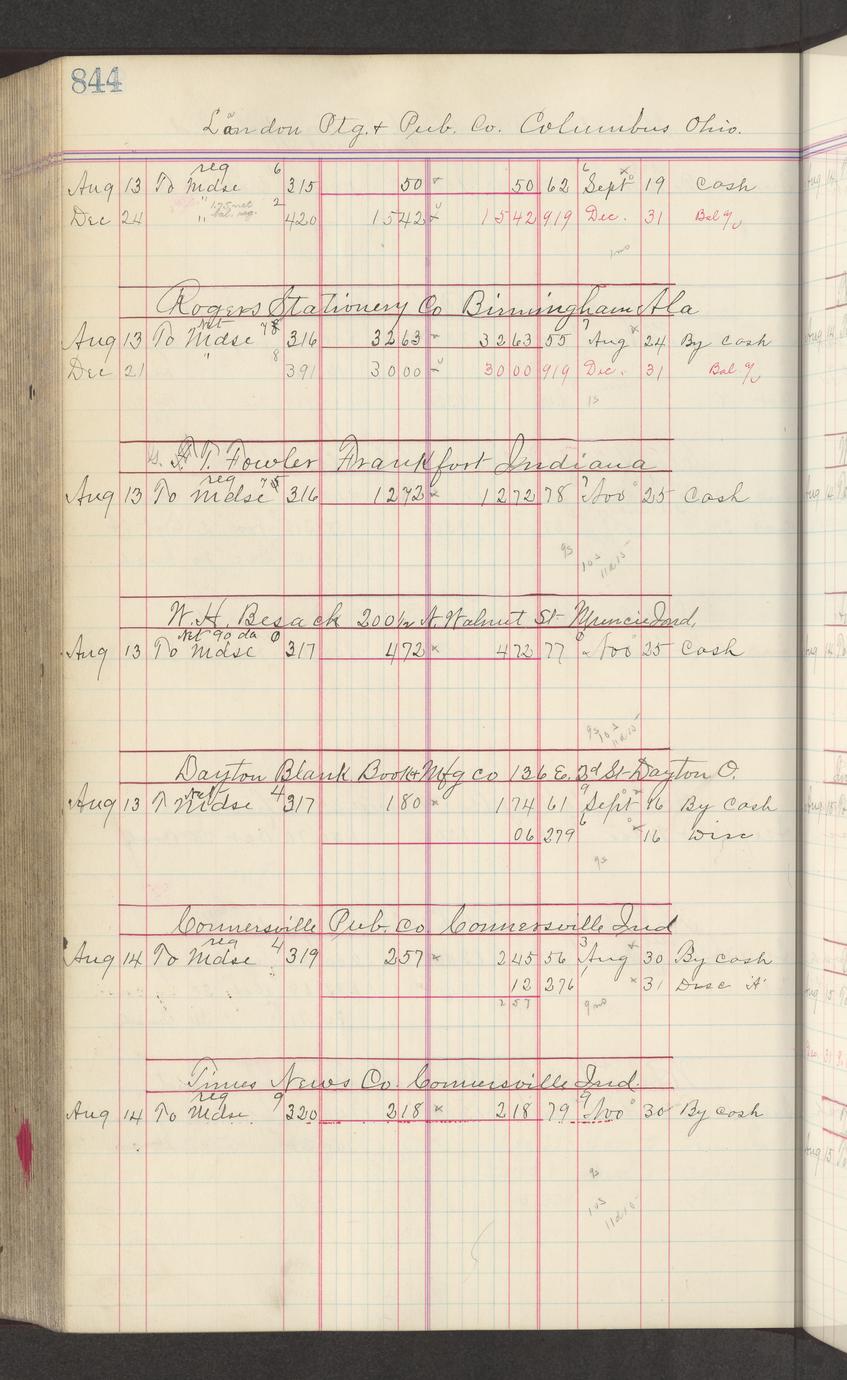 844
London Ptg. & Pub. Co. Columbus Ohio.
reg 6
Aug 13 To Mdse 315 50 50 62 Sept 19 Cash
" 1.75 net 2
Dec 24 " bal. reg. 420 1542 1542 919 Dec. 31 Bal %
1 mo
Rogers Stationery Co Birmingham Ala
net 78 7
Aug 13 To Mdse 316 3263 3263 55 Aug 24 By Cash
Dec 21 " 8 391 3000 3000 919 Dec. 31 Bal %
1s
T. Fowler Frankfort Indiana
reg 7
Aug 13 To Mdse 316 1272 1272 78 Nov 25 Cash
9s 10s 11d15
W. H. Besack 200 1/2 N. Walnut St Muncie Ind.
Net 90 da 0
Aug 13 To Mdse 317 472 472 77 Nov 25 Cash
9s 10s 11d15
Dayton Blank Book & Mfg Co 136 E. 3d St Dayton O.
Net 4 9
Aug 13 T Mdse 317 180 174 61 Sept 16 By Cash
06 279 6 16 Disc
9s
Connersville Pub. Co. Connersville Ind
reg 4 3
Aug 14 To Mdse 319 257 245 56 Aug 30 By Cash
12 276 31 Disc "A"
257 9 mo
Times News Co. Connersville Ind.
reg 9 9
Aug 14 To Mdse 320 218 218 79 Nov 30 By Cash
9s
10s
11d10